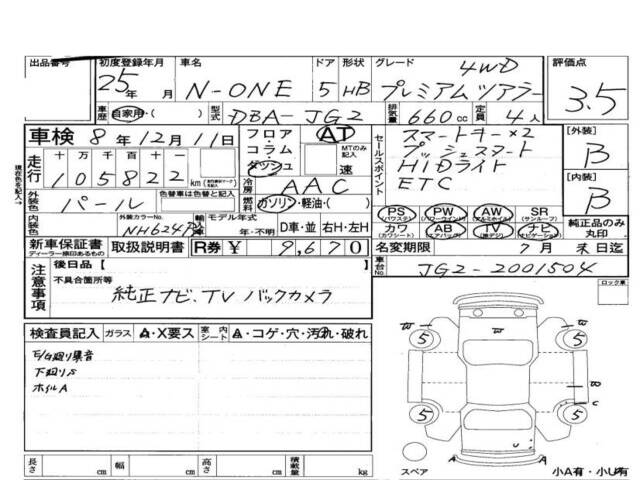 出品番号 初度登録年月 車名 ドア 形状 グレード 評価点
25年 N-ONE 5 HB プレミアムツアラー 4WD 3.5
車歴 自家用・( ) 型式 DBA-JG2 排気量 660cc 定員 4人
車検 8年12月11日 フロア・コラム・ダッシュ AT
MTのみ記入 速
走行 十 万 千 百 十 一
105822 km
冷房 AAC
外装色 パール 色替車は色替と記入 燃料 ガソリン・軽油・( )
内装色 外装カラーNo. NH624P 輸入車 モデル年式 年・不明 D車・並 右H・左H
セールスポイント
スマートキー×2
プッシュスタート
HIDライト
ETC
PS (パワステ) PW (パワーウインド) AW (アルミホイル) SR (サンルーフ)
カワ (カワシート) AB (エアバッグ) TV (地デジ) ナビ (ナビゲーション)
[外装]
B
[内装]
B
純正品のみ丸印
新車保証書 ディーラー捺印あるもの 取扱説明書 R券 ¥ 9,670 名変期限 7月末日迄
注意事項 後日品[ ] 車台No. JG2-2001504
不具合箇所等
純正ナビ.TV バックカメラ
ロック車
検査員記入 ガラス A・X要ス 室内シート A・コゲ・穴・汚れ・破れ
E/G廻り異音
下廻りS
ホイルA
W W
5 5
B
C
5 5
U
A A
スペア
小A有・小U有
長さ cm 幅 cm 高さ cm 積載量 kg
現在色を記入→